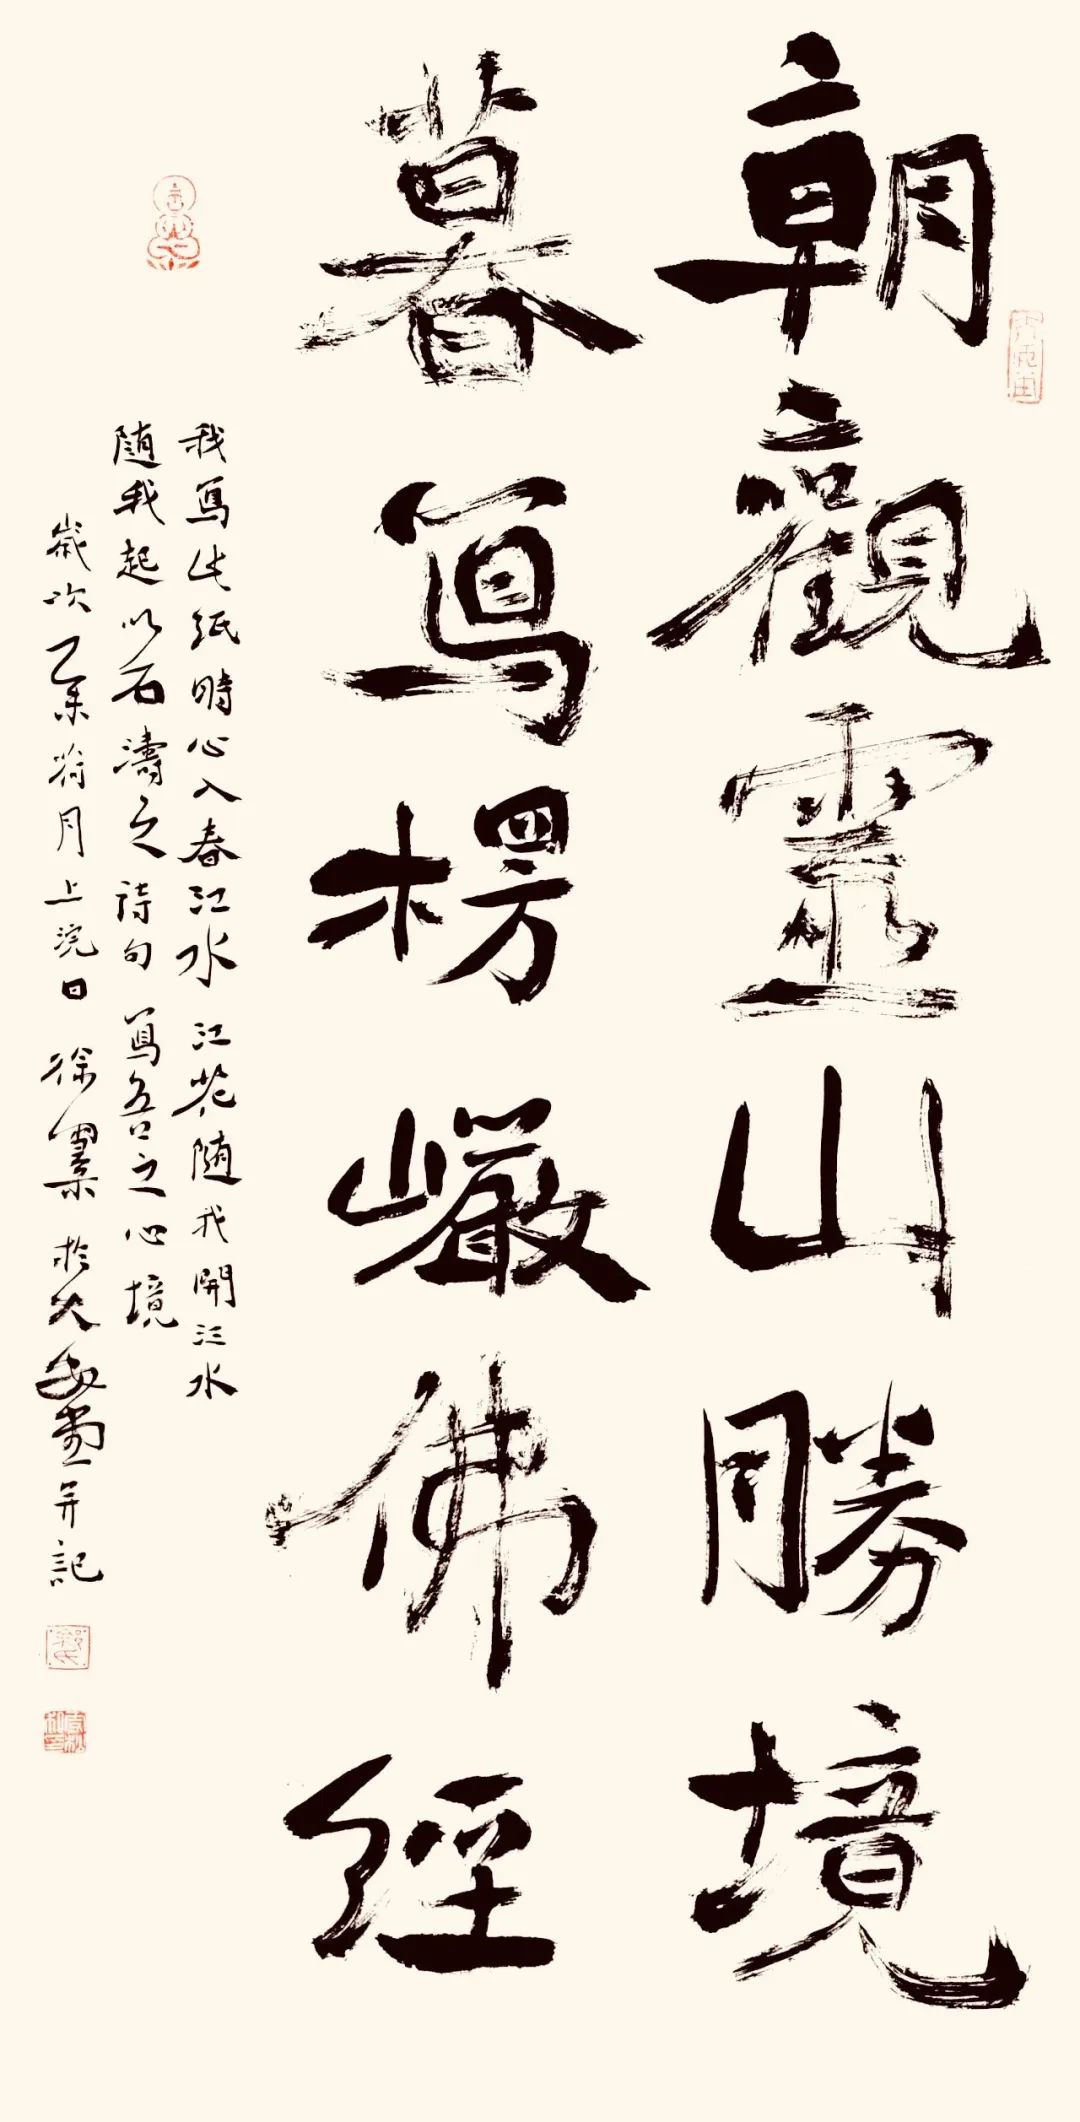 朝觀靈山勝境
暮寫楞嚴佛經
我寫此紙時心入春江水江花隨我開江水
隨我起以石濤之詩句寫吾之心境
歲次乙未荷月上浣日徐於大堂并記